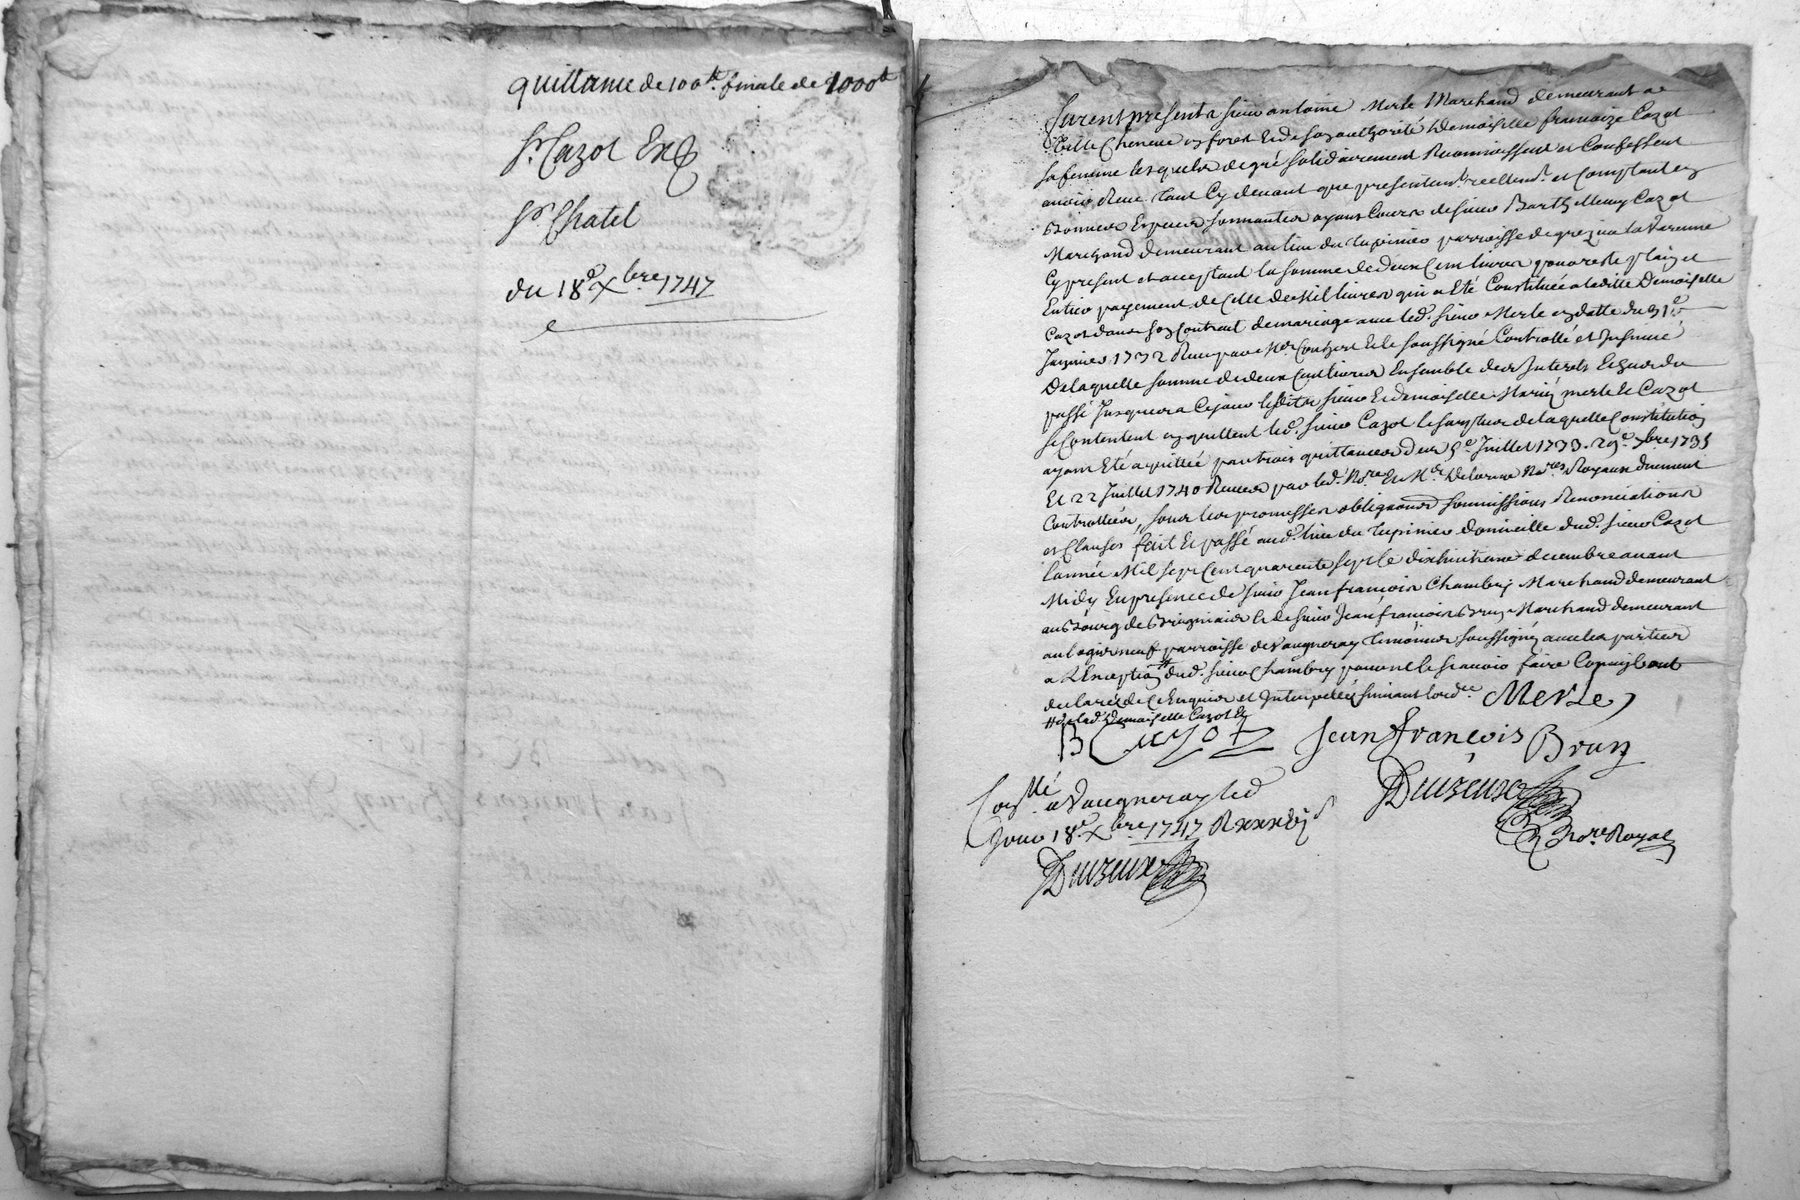 quittance de 100ᵗᵗ. finale de 1000ᵗᵗ
Sʳ. Cazot Et
Sʳ. Chatel
du 18ᵉ Xᵇʳᵉ 1747
furent presents sieur antoine Merle Marchand demeurant a
Ville Cheneve en forest Et de son authorité Demoiselle francoize Cazot
sa femme lesquels de gré solidairement Reconnoissent et Confessent
avoir Receu tant Cy devant que presentemᵗ. reellemᵗ. et Comptant en
Bonnes Especes sonnantes ayant Cours de sieur Barthellemy Cazot
Marchand demeurant au lieu du Tupinier parroisse de grezieu la Varenne
Cy present et acceptant la somme de deux Cent livres pour reste plain et
Entier payement de Celle de Mil livres qui a Eté Constituée a laditte Demoiselle
Cazot dans son Contract de mariage avec led. sieur Merle en datte du 31ᵉ
Janvier 1732 Receu par Mᵉ et le soussigné Controllé et Insinué
De laquelle somme de deux Cent livres Ensemble des Interets Echus du
passé Jusques a Ce jour lesdits sieur Et demoiselle Mariés merle Et Cazot
se Contentent en quittent led. sieur Cazot le surplus de laquelle Constitution
ayant Eté acquittée par trois quittances des 5ᵉ Juillet 1733. 29ᵉ. Xᵇʳᵉ 1735
Et 22 Juillet 1740 Receues par led. Noʳᵉ Et Mᵉ Delorme Noʳᵉˢ Royaux duement
Controllées, sous les promesses obligaons soumissions Renonciations
et Clauses fait Et passé aud. lieu du Tupinier domicille dud. sieur Cazot
l'année Mil sept Cent quarente sept le dixhuitieme decembre avant
Midy En presence de sieur Jean francois Chambry Marchand demeurant
au Bourg de Brignais Et de sieur Jean francois Brun Marchand demeurant
au logis neuf parroisse de Vaugneray temoins soussignés avec les parties
a L'Exception # dud. sieur Chambry pour ne le scavoir faire Comme ils ont
declaré de Ce Enquis et Interpellés suivant lordᶜᵉ. Merle
# de lad. Demoiselle Cazot Et
B Cazot Jean François Brun
Contˡˡᵉ a Vaugneray led
Jour 18ᵉ. Xᵇʳᵉ 1747 R
Noʳᵉ Royal